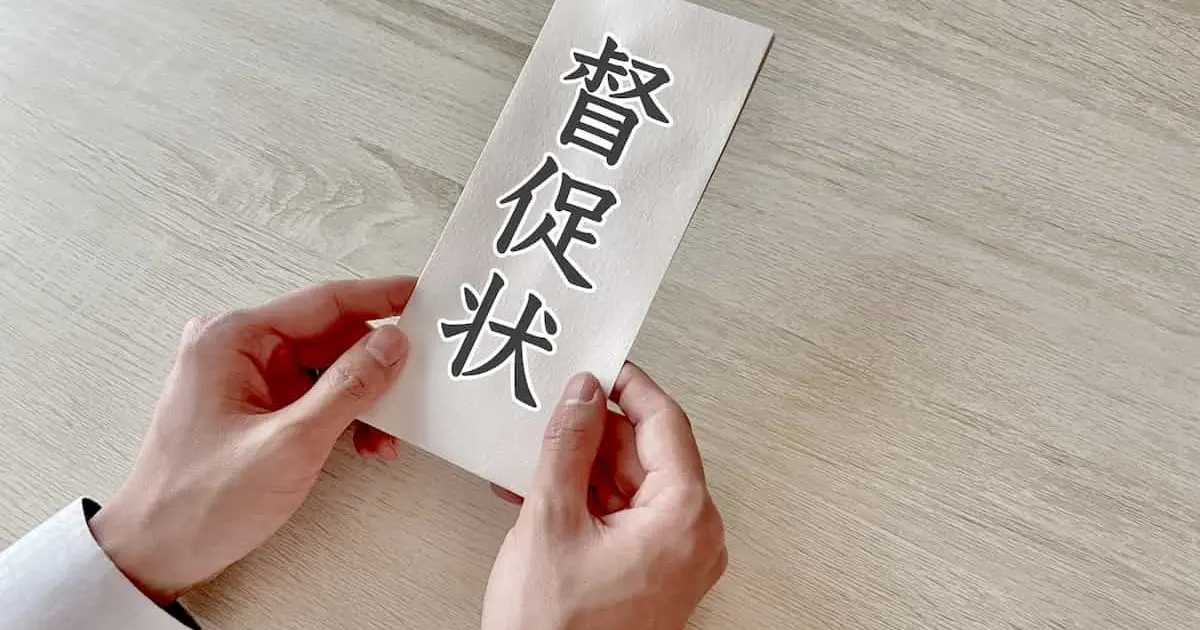 督促状